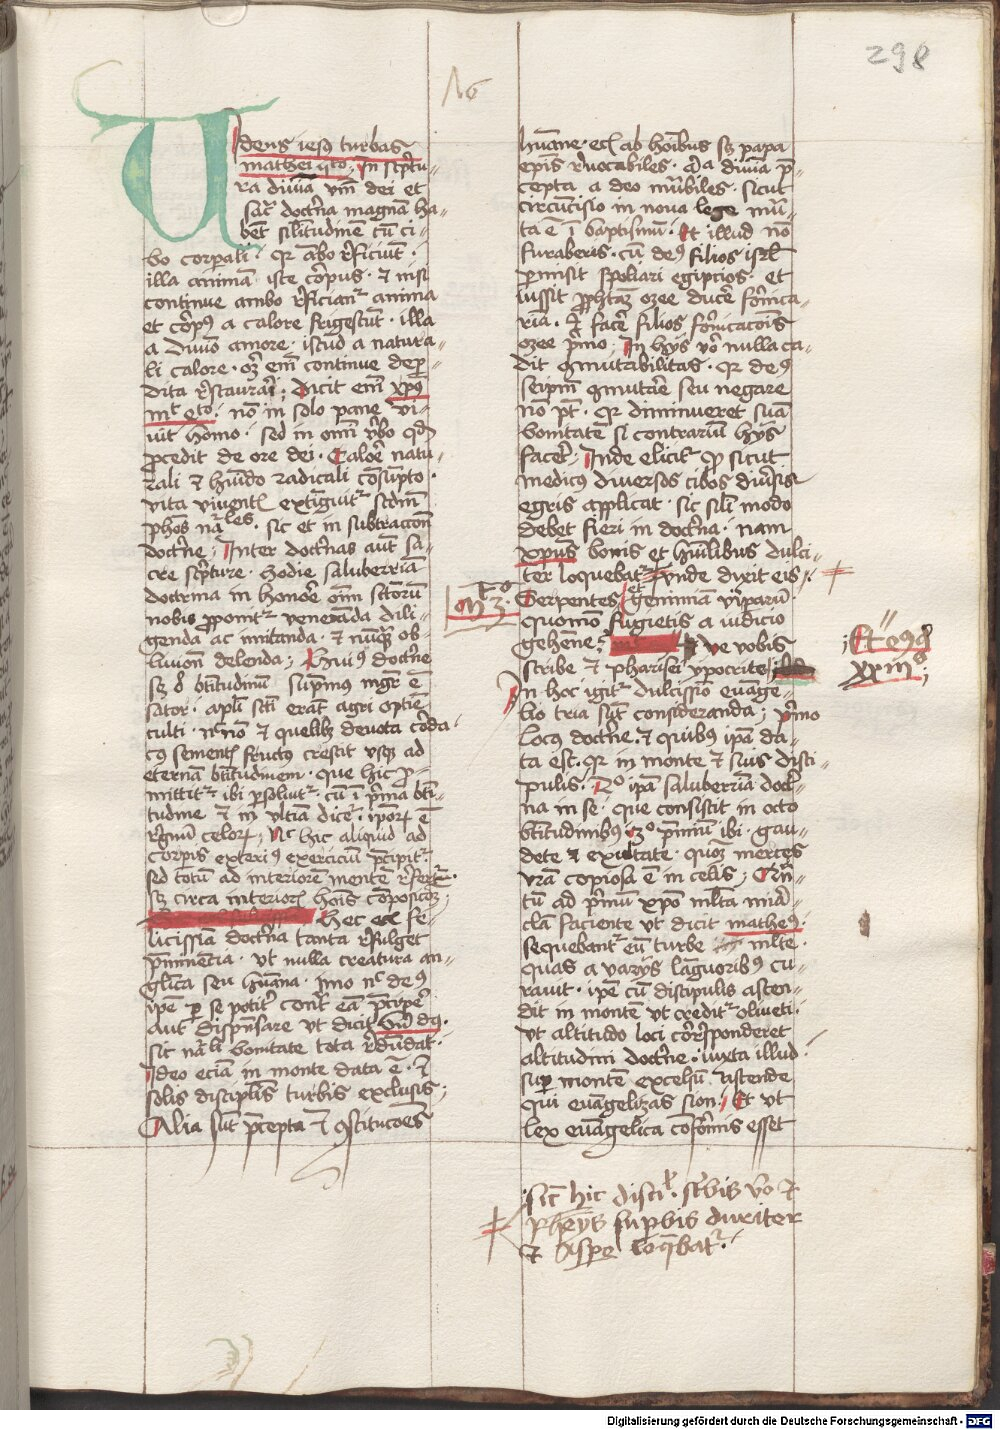 298
16
Videns iesus turbas
mathei qto. In scptu-
ra diuia vm dei et
sac doctna magna ha-
bet silitudine cu ci-
bo corpali. qr abo rficiut.
illa animã. iste corpus. et nisi
continue ambo rficiant anima
et corps a calore frigescut. illa
a diuio amore. istud a natura-
li calore. oz em continue deper-
dita rstaurari; Dicit em xps
mt qto. nõ in solo pane vi-
uit homo. sed in omi vbo qd
pcedit de ore dei. Calore natu-
rali et huido radicali consupto.
vita viuent extiguit scdm
phos nales. sic et in subtractione
doctne; Inter doctnas aut sa-
cre scpture. hodie saluberria
doctrina in honore oim sctorum
nobis pponit veneranda dili-
genda ac imitanda. et nuq ob-
liuioni delenda; Huius doctne
sz d btitudinu supmus mgr e
sator. apli scti erat agri optie
culti. nc no et quelibz deuota corda
cus sementis fructus crescit vsqz ad
eternam btitudinem. que hic p-
mittit et ibi psoluit. cu i pma bti-
tudine et in vltia dicer. ipor e
rgnu celor; Nc hic aliquid ad
corpis exterius exerciciu pcipit.
sed totu ad interiore mente rfert.
sz circa interior hois compositoz;
Hec est fe-
licissia doctna tanta rfulget
pminecia. vt nulla creatura an-
glica seu huana. imo nc deus
ipe per se potit cont ea pcipe
aut dispensare vt dicit
sit nali bonitate tota rdundat.
Ideo eciã in monte data e. et
solis discipulis turbis exclusis;
Alia sut pcepta et constitucoes
huane. ecl ab hoibus sz papa
epis rvocabiles. Alia diuia p-
cepta a deo mubiles. sicut
circucisio in noua lege mu-
ta e i baptismu. Et illud no
furaberis. cu deus filios isrl
pmisit spoliari egiptios. et
iussit pphtaz ozee ducere fornica-
ria. et facere filios fornicacois
ozee pmo. In hys vo nulla ca-
dit omutabilitas. qr deus
seipm omutare seu negare
no pt. qr diminueret sua
bonitate si contrariu hys
facet; Inde elicit qp sicut
medicus diuersos cibos diuisis
egris applicat. sic sili modo
debet fieri in doctna. nam
xpus bonis et humilibus dulci-
ter loquebat. vnde dixit eis.
mt 3o
Serpentes et genimina viparu
quomo fugietis a iudicio
gehenne. ve vobis
Et eiusd
xxiiio;
scribe et pharisei ypocrite
In hoc igit dulcissio euange-
lio tria sut consideranda; pmo
locus doctne. et quibus ipa da-
ta est. qr in monte et suis disci-
pulis. 2o ipa saluberria doct-
na in se. que consistit in octo
btitudinibus. 3o pmiu ibi. gau-
dete et exultate. quoz merces
vra copiosa e in celis; Quan-
tu ad pmu xpo multa mira-
cla faciente vt dicit matheus.
sequebant eu turbe mlte.
quas a varys laguoribus cu-
rauit. ipe cu discipulis ascen-
dit in monte vt credit oliueti.
vt altitudo loci corrsponderet
altitudini doctne. iuxta illud.
sup monte excelsu ascende
qui euangelizas sion; Et vt
lex euangelica cofomis esset
sic hic discil. scbis vo et
pheys supbis duriter
et aspe loqbat.
Digitalisierung gefördert durch die Deutsche Forschungsgemeinschaft - DFG